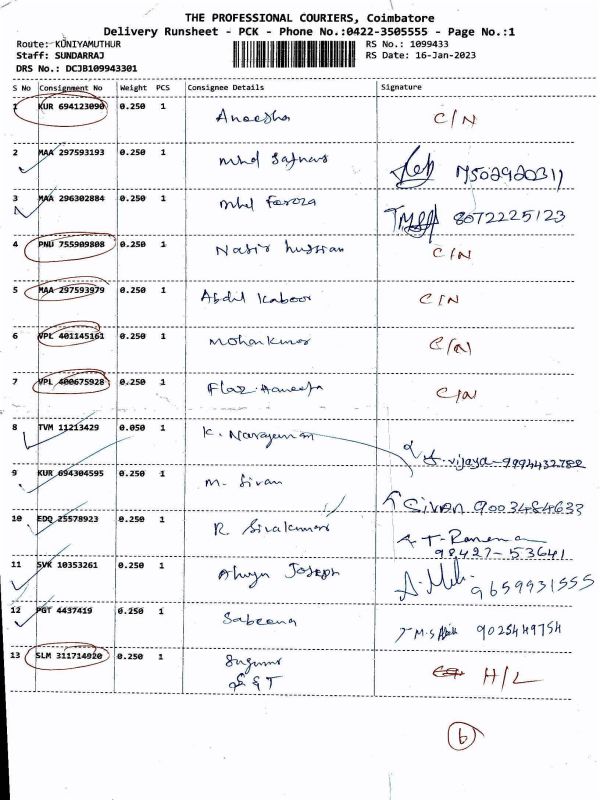 THE PROFESSIONAL COURIERS, Coimbatore
Delivery Runsheet - PCK - Phone No.:0422-3505555 - Page No.:1
Route: KUNIYAMUTHUR RS No.: 1099433
Staff: SUNDARRAJ RS Date: 16-Jan-2023
DRS No.: DCJB109943301
S No Consignment No Weight PCS Consignee Details Signature
1 KUR 694123090 0.250 1 Aneesha C/N
2 MAA 297593193 0.250 1 Mhd 7502920311
3 MAA 296302884 0.250 1 Mhd Feroza 8072225123
4 PNU 755909808 0.250 1 Nasir Hussian C/N
5 MAA 297593979 0.250 1 Abdil Kaboor C/N
6 VPL 401145161 0.250 1 Mohankumar C/N
7 VPL 400675928 0.250 1 C/N
8 TVM 11213429 0.050 1 K. Narayanan vijaya 9994432782
9 KUR 694304595 0.250 1 M. Sivan Sivan 9003484633
10 EDQ 25578923 0.250 1 R Sivakumar
98427-53641
11 SVK 10353261 0.250 1 Alwyn Joseph 9659931555
12 PGT 4437419 0.250 1 Sabeena M.S 9025449754
13 SLM 311714920 0.250 1 H/L
6